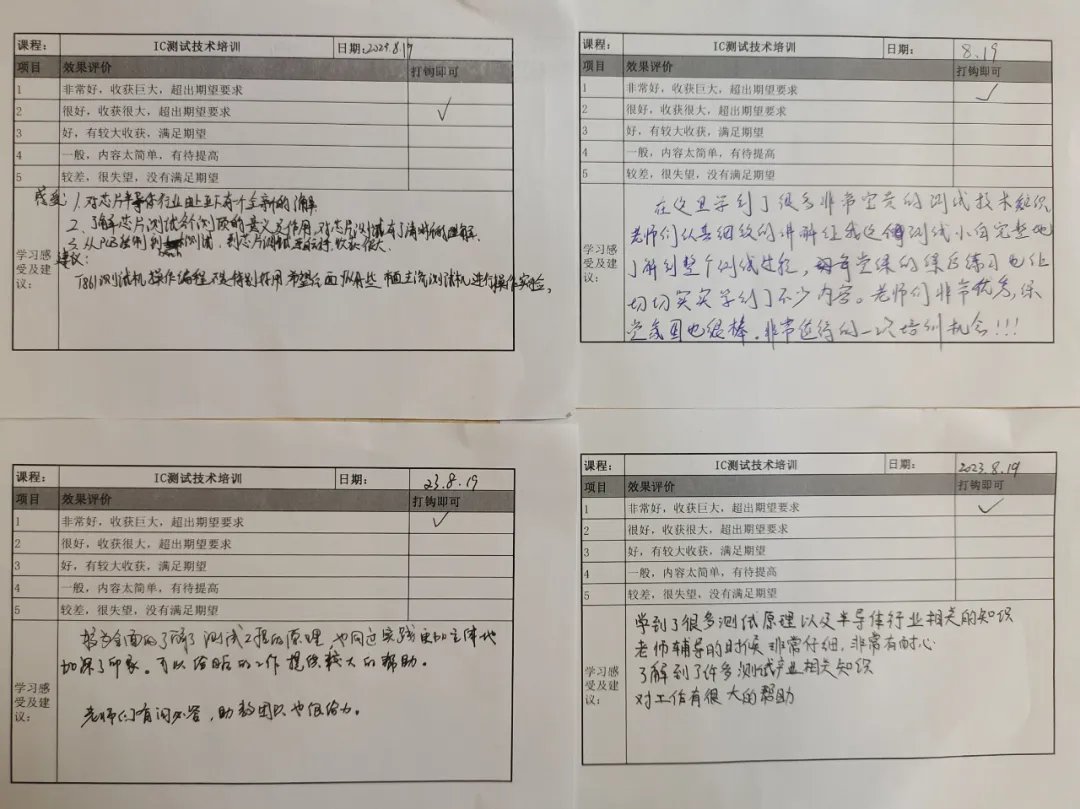 课程： IC测试技术培训 日期：2023.8.19
项目 效果评价 打钩即可
1 非常好，收获巨大，超出期望要求
2 很好，收获很大，超出期望要求 ✓
3 好，有较大收获，满足期望
4 一般，内容太简单，有待提高
5 较差，很失望，没有满足期望
学习感受及建议：
感受：1. 对芯片半导体行业由上至下有个全新的了解
2、了解芯片测试各个测项的意义及作用，对芯片测试有了清晰的理解.
3. 测试，到芯片测试 收获很大。
建议：
T861测试机操作编程 希望后面 市面主流测试机进行操作实验。
课程： IC测试技术培训 日期： 8.19
项目 效果评价 打钩即可
1 非常好，收获巨大，超出期望要求 ✓
2 很好，收获很大，超出期望要求
3 好，有较大收获，满足期望
4 一般，内容太简单，有待提高
5 较差，很失望，没有满足期望
学习感受及建议：
在这里学到了很多非常宝贵的测试技术知识
老师们认真细致的讲解让我这个测试小白完整地
了解到整个测试过程，每每堂课的课后练习也让
切切实实学到了不少内容。老师们非常优秀，课
堂氛围也很棒。非常值得的一次培训机会!!!
课程： IC测试技术培训 日期： 23.8.19
项目 效果评价 打钩即可
1 非常好，收获巨大，超出期望要求 ✓
2 很好，收获很大，超出期望要求
3 好，有较大收获，满足期望
4 一般，内容太简单，有待提高
5 较差，很失望，没有满足期望
学习感受及建议：
较为全面的了解了测试工程的原理，也通过实践更加立体地
加深了印象。可以给日后的工作提供较大的帮助。
老师们有问必答，助教团队也很给力。
课程： IC测试技术培训 日期： 2023.8.19
项目 效果评价 打钩即可
1 非常好，收获巨大，超出期望要求 ✓
2 很好，收获很大，超出期望要求
3 好，有较大收获，满足期望
4 一般，内容太简单，有待提高
5 较差，很失望，没有满足期望
学习感受及建议：
学到了很多测试原理以及半导体行业相关的知识
老师辅导的时候非常仔细，非常有耐心
了解到了许多测试产业相关知识
对工作有很大的帮助